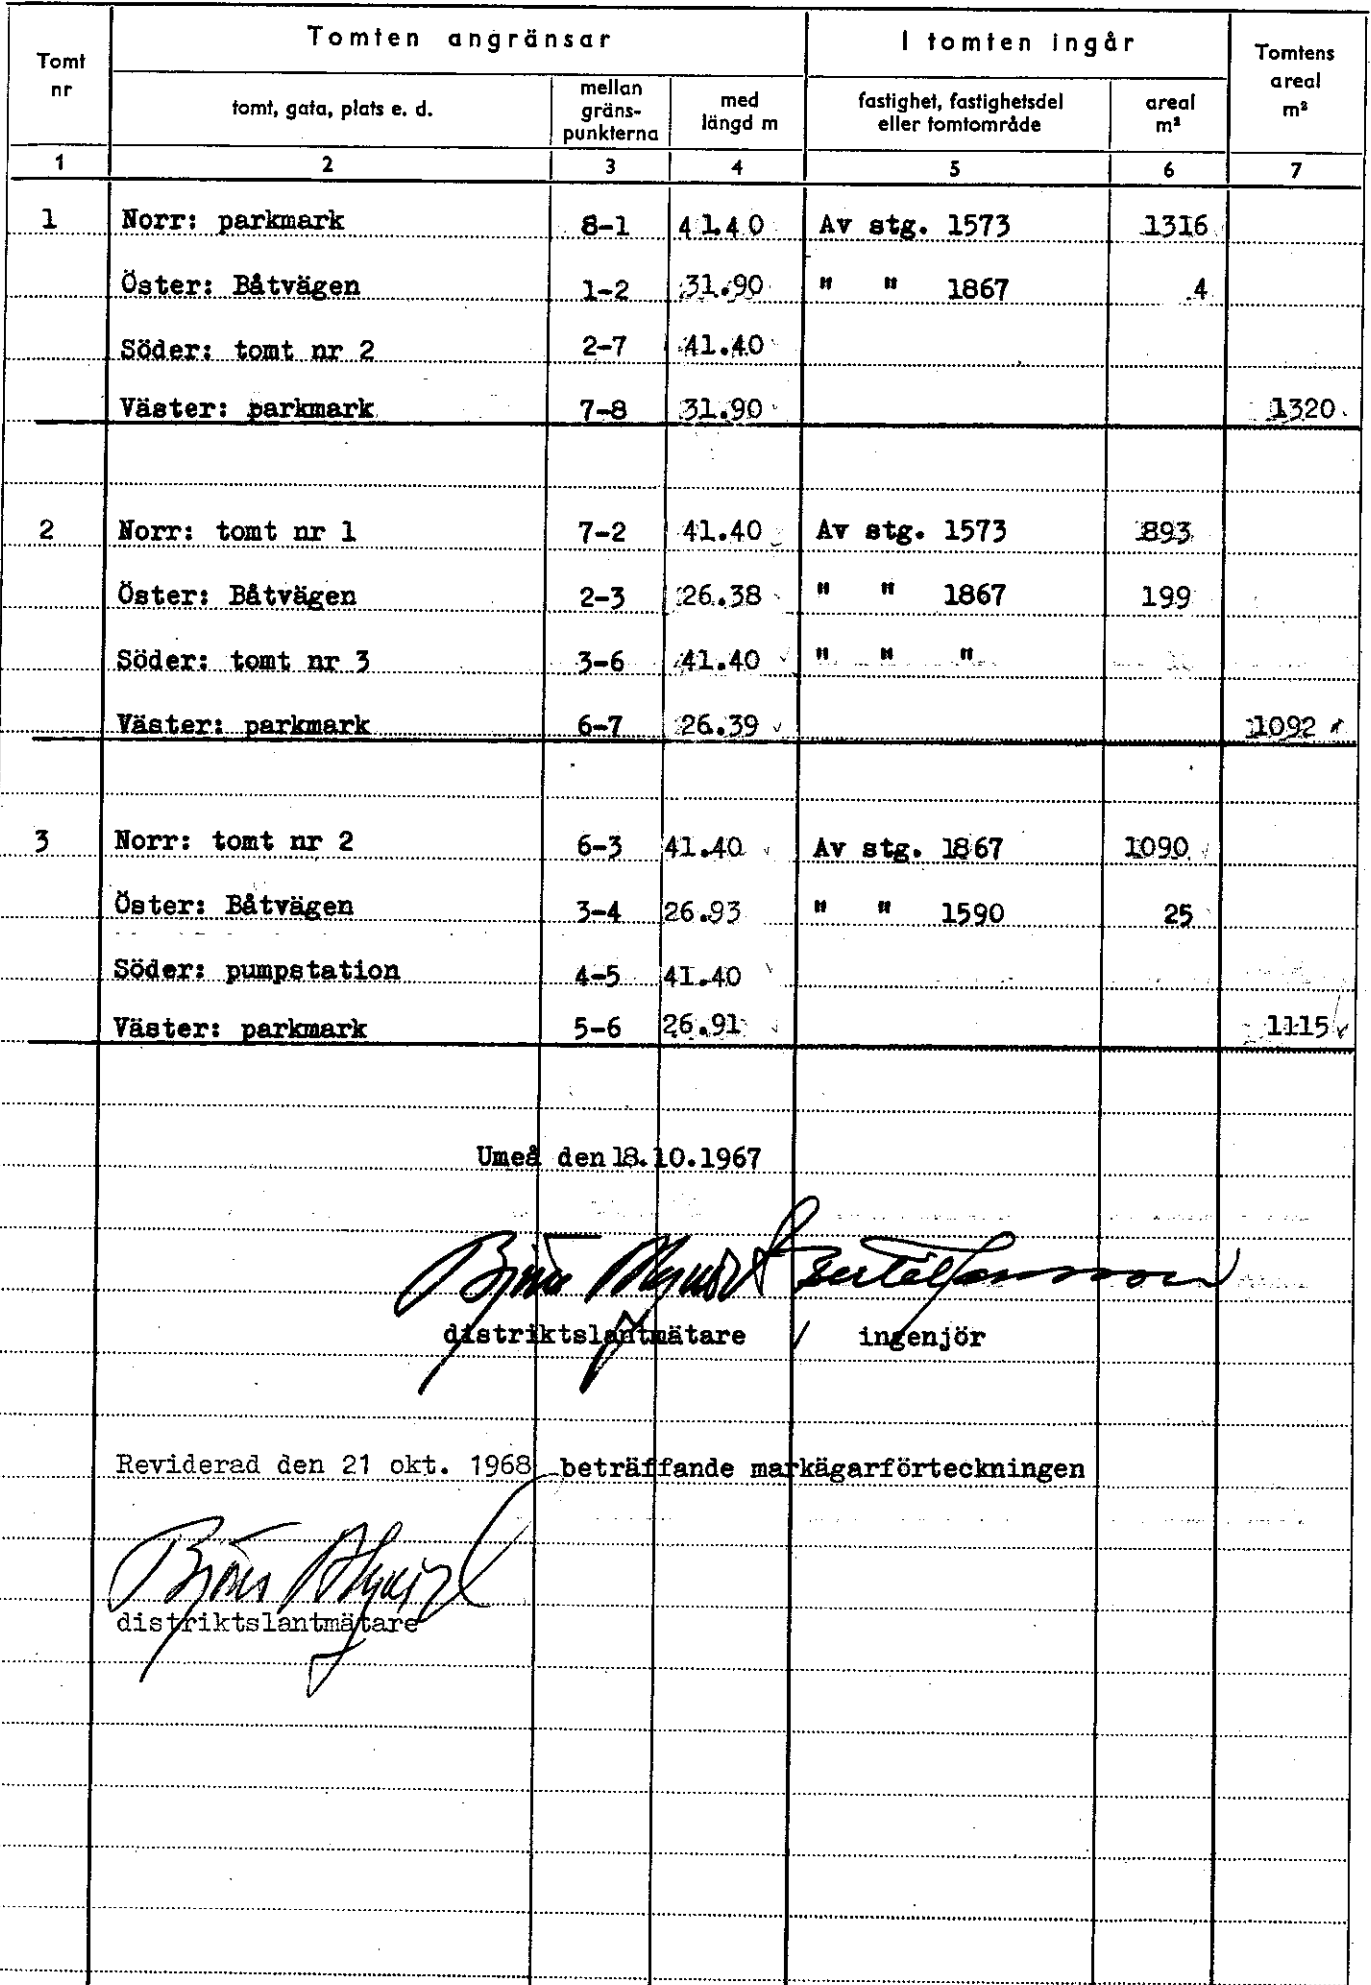 Tomten angränsar I tomten ingår
Tomt nr tomt, gata, plats e. d. mellan gräns-punkterna med längd m fastighet, fastighetsdel eller tomtområde areal m² Tomtens areal m²
1 2 3 4 5 6 7
1 Norr: parkmark 8-1 41.40 Av stg. 1573 1316
Öster: Båtvägen 1-2 31.90 " " 1867 4
Söder: tomt nr 2 2-7 41.40
Väster: parkmark 7-8 31.90 1320
2 Norr: tomt nr 1 7-2 41.40 Av stg. 1573 893
Öster: Båtvägen 2-3 26.38 " " 1867 199
Söder: tomt nr 3 3-6 41.40 " " "
Väster: parkmark 6-7 26.39 1092
3 Norr: tomt nr 2 6-3 41.40 Av stg. 1867 1090
Öster: Båtvägen 3-4 26.93 " " 1590 25
Söder: pumpstation 4-5 41.40
Väster: parkmark 5-6 26.91 1115
Umeå den 18.10.1967
Björn Bertil Jansson
distriktslantmätare ingenjör
Reviderad den 21 okt. 1968 beträffande markägarförteckningen
Björn
distriktslantmätare